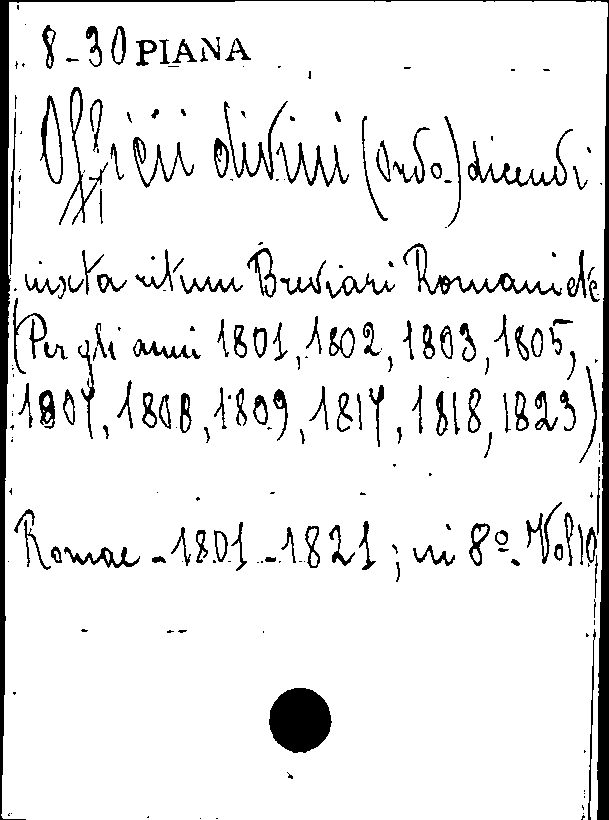 8-30 PIANA
Officii divini (Ordo) dicendi
iuxta ritum Breviari Romani etc
(Per gli anni 1801, 1802, 1803, 1805,
1807, 1808, 1809, 1817, 1818, 1823)
Romae - 1801 - 1821; in 8º. Vol 10